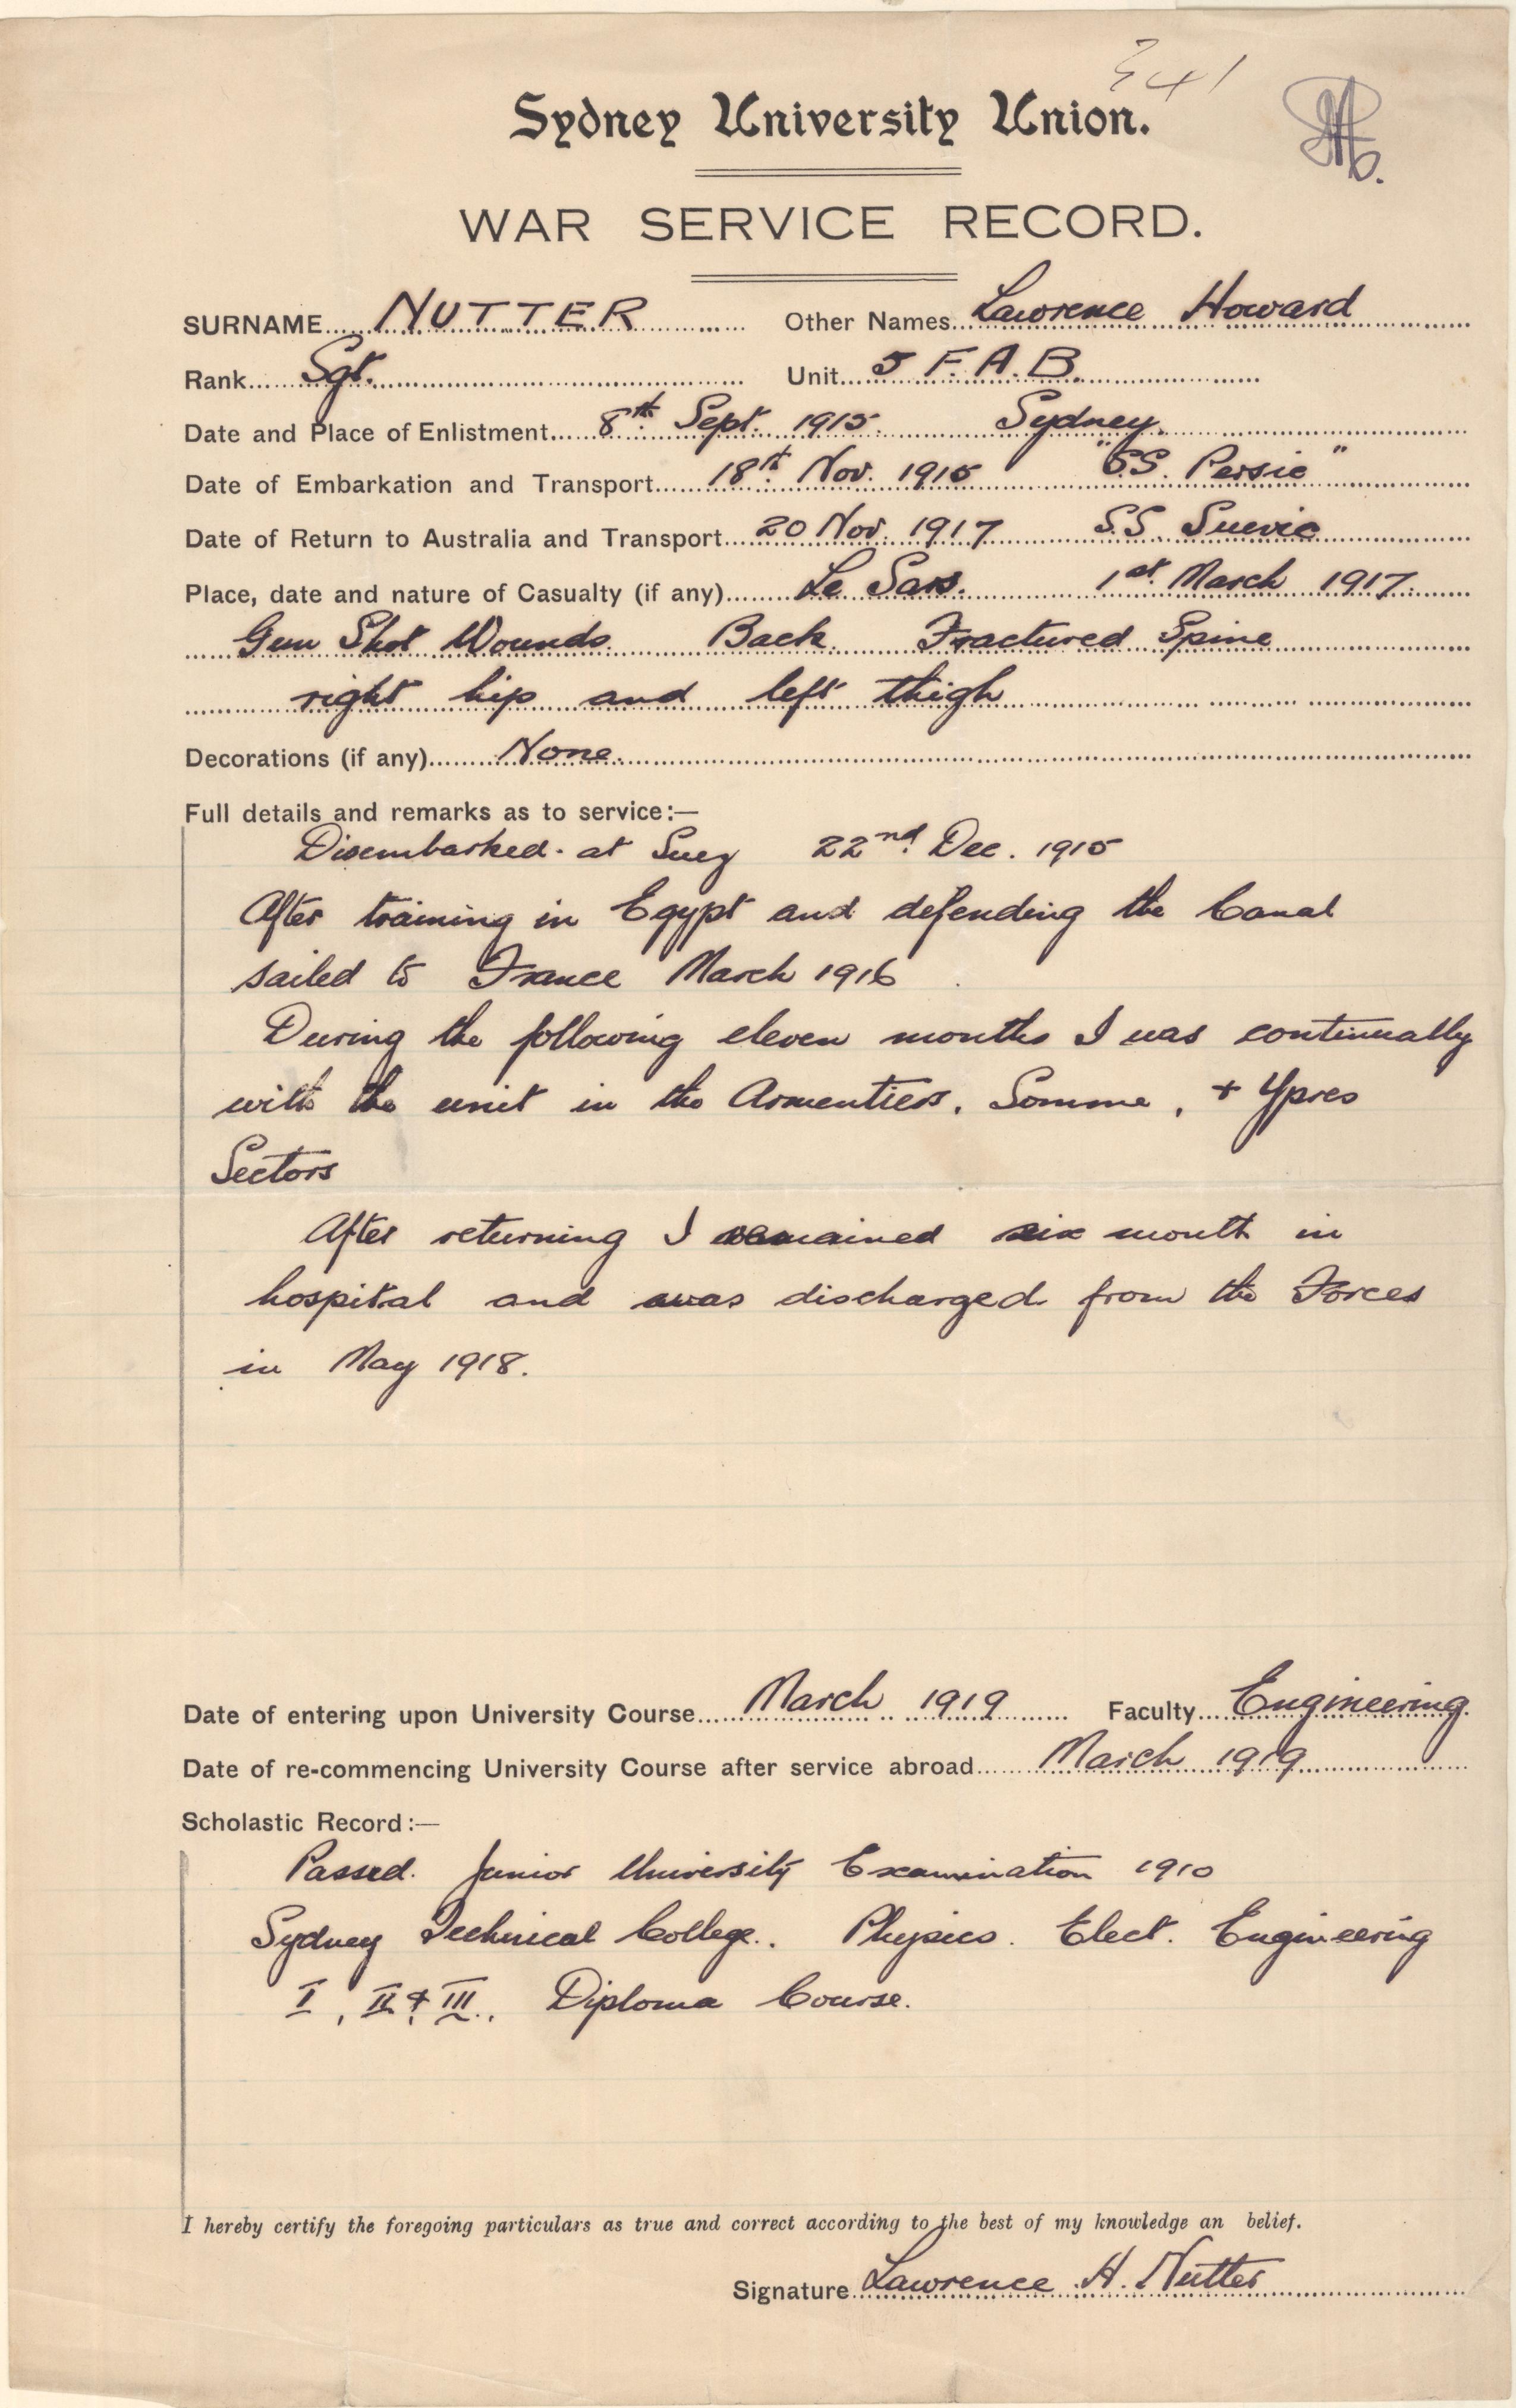 341
Sydney University Union.
WAR SERVICE RECORD.
SURNAME NUTTER Other Names Lawrence Howard
Rank Sgt. Unit 5 F.A.B.
Date and Place of Enlistment 8th Sept. 1915. Sydney.
Date of Embarkation and Transport 18th Nov. 1915 "SS. Persic"
Date of Return to Australia and Transport 20 Nov. 1917 S.S. Suevic
Place, date and nature of Casualty (if any) Le Sars. 1st March 1917.
Gun Shot Wounds. Back. Fractured Spine
right hip and left thigh
Decorations (if any) None.
Full details and remarks as to service:—
Disembarked at Suez 22nd Dec. 1915
After training in Egypt and defending the Canal
sailed to France March 1916
During the following eleven months I was continually
with the unit in the Armentiers, Somme, + Ypres
Sectors
After returning I remained six month in
hospital and was discharged from the Forces
in May 1918.
Date of entering upon University Course March 1919 Faculty Engineering.
Date of re-commencing University Course after service abroad March 1919
Scholastic Record:—
Passed. Junior University Examination 1910
Sydney Technical College. Physics. Elect. Engineering
I, II & III. Diploma Course.
I hereby certify the foregoing particulars as true and correct according to the best of my knowledge an belief.
Signature Lawrence H. Nutter